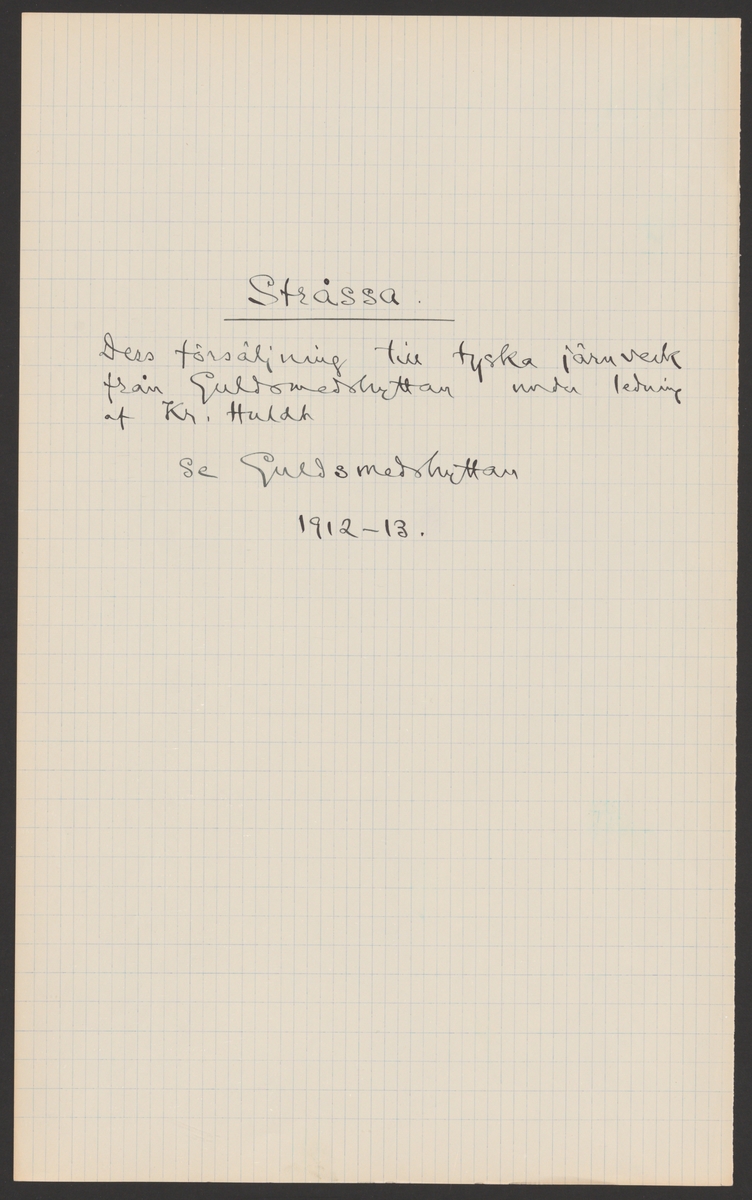 Stråssa.
Dess försäljning till tyska järnverk
från Guldsmedshyttan under ledning
af Kr. Huldt
Se Guldsmedshyttan
1912-13.